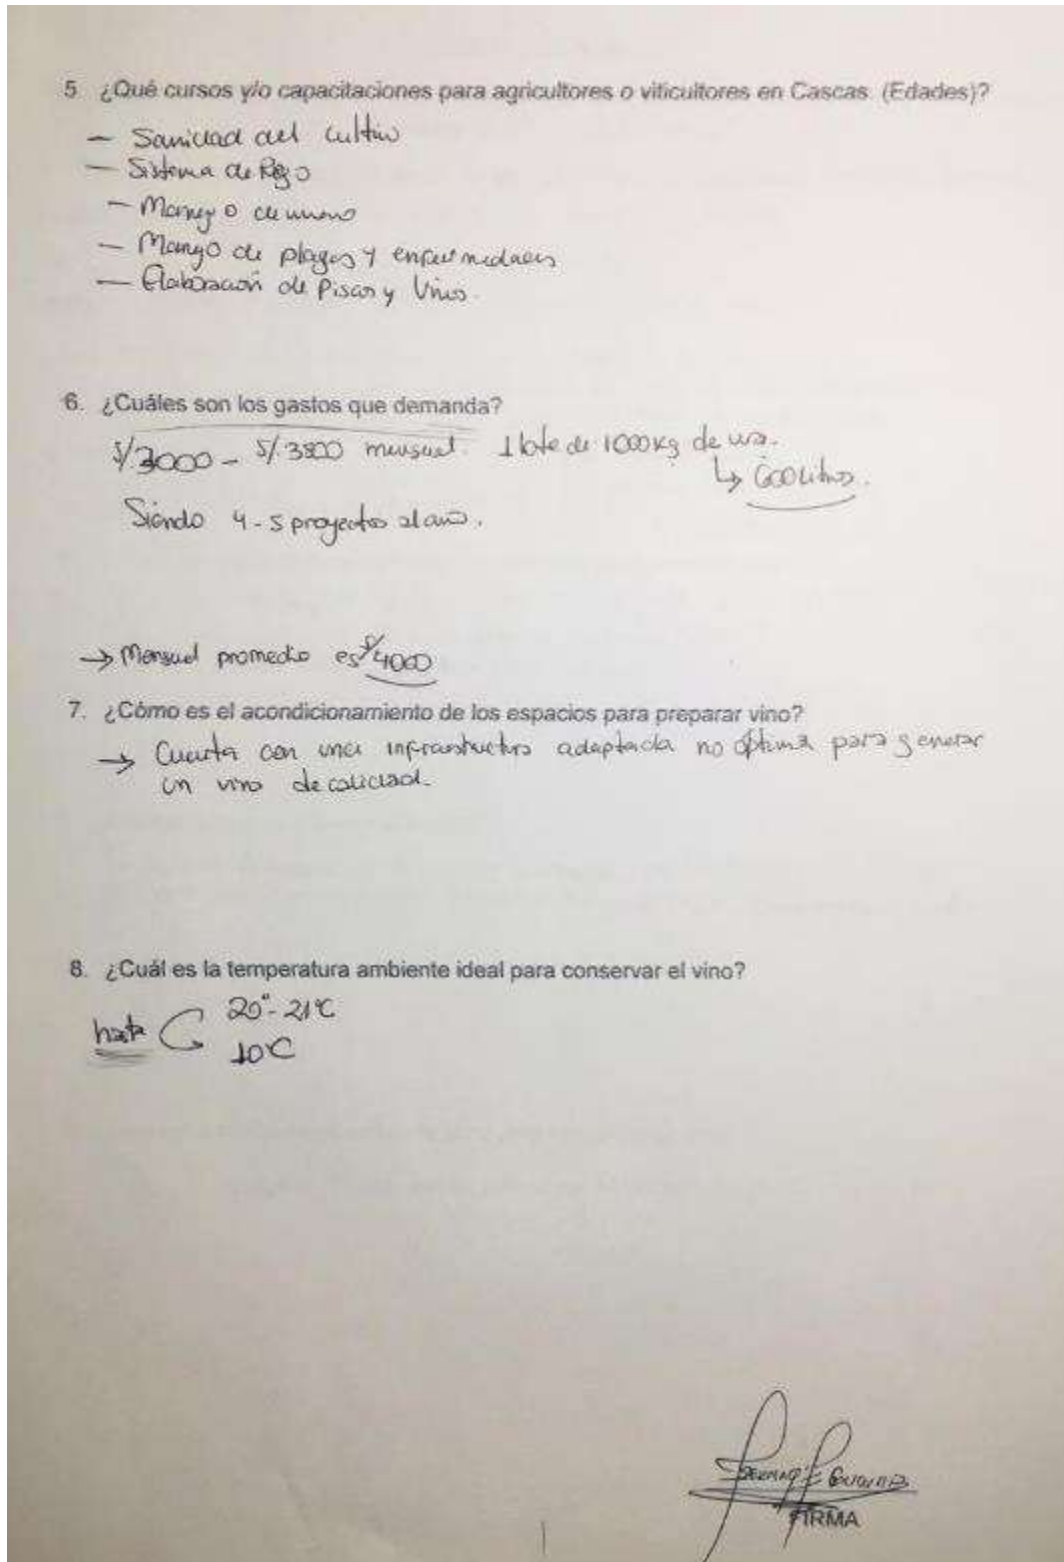 5. ¿Qué cursos y/o capacitaciones para agricultores o viticultores en Cascas. (Edades)?
— Sanidad del cultivo
— Sistema de Riego
— Manejo de
— Manejo de plagas y enfermedades
— Elaboración de Piscos y Vinos.
6. ¿Cuáles son los gastos que demanda?
S/3000 - S/.3800 mensual. 1 lote de 1000 kg de uva.
↳ 600 Litros.
Siendo 4-5 proyectos al año.
→ Mensual promedio es S/4000
7. ¿Cómo es el acondicionamiento de los espacios para preparar vino?
→ Cuenta con una infraestructura adaptada no óptima para generar
un vino de calidad.
8. ¿Cuál es la temperatura ambiente ideal para conservar el vino?
20° - 21°C
hasta
10°C
FIRMA